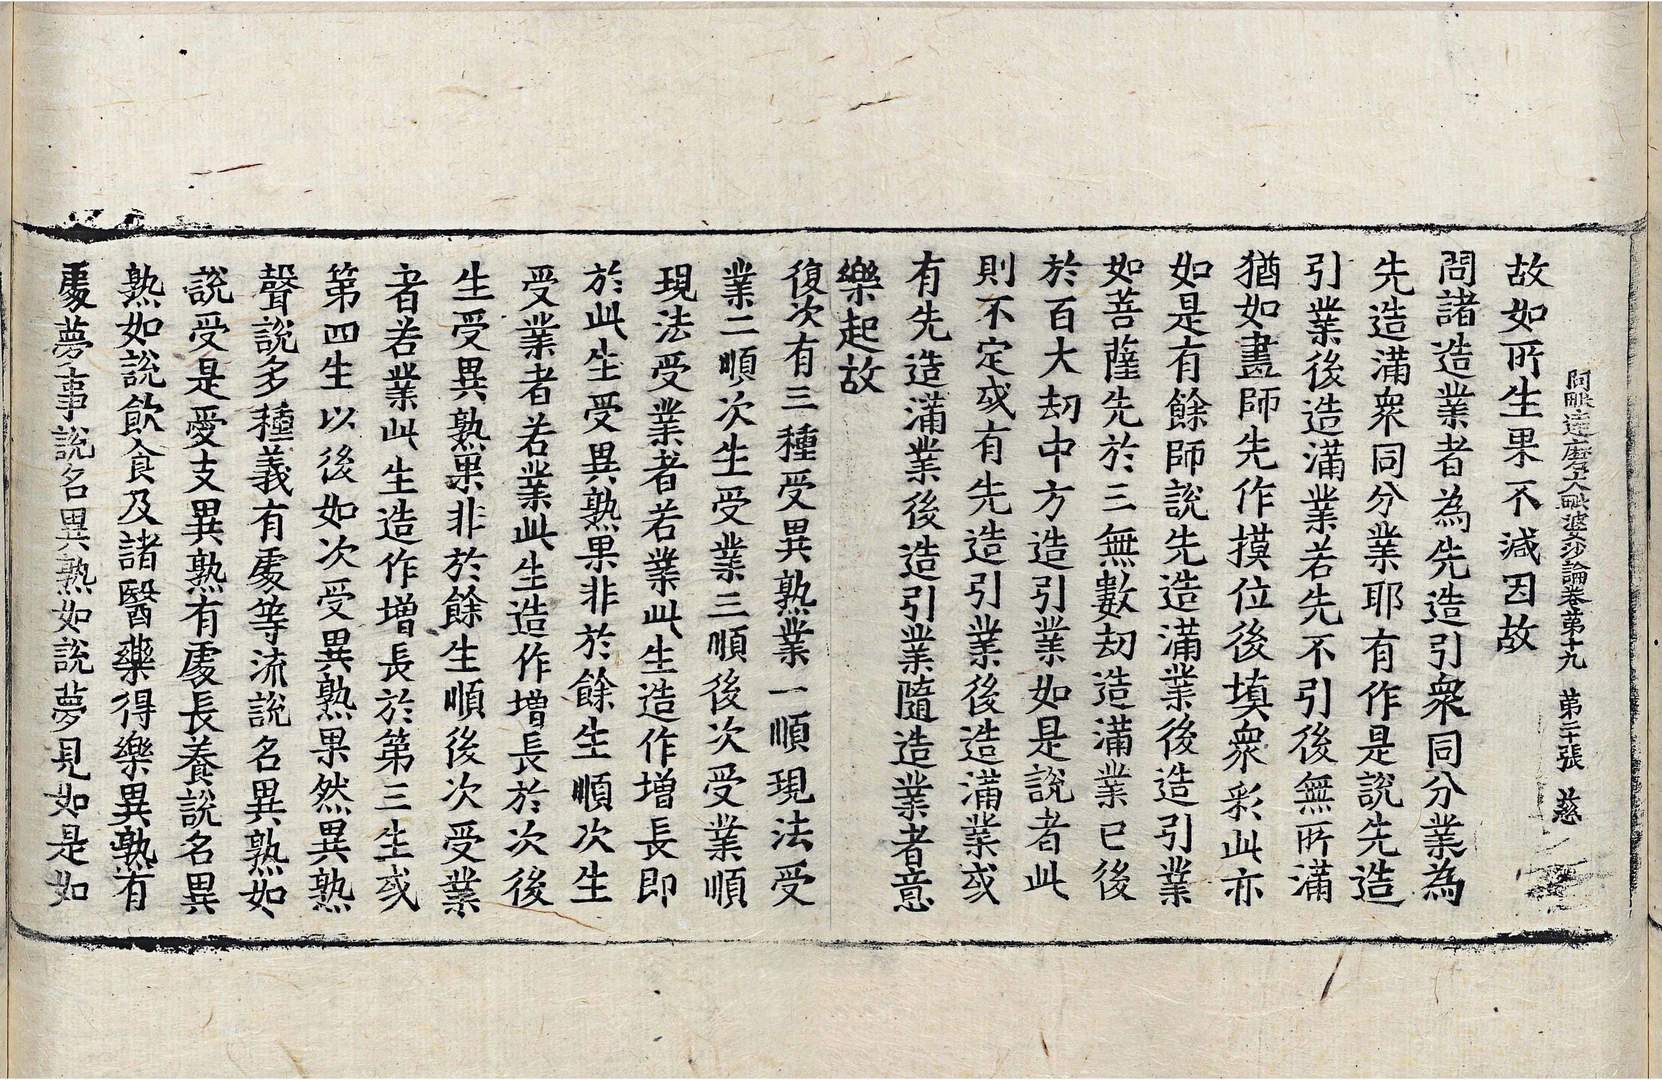 阿毗達磨大毗婆沙論卷第十九　第二十張　慈
故如所生果不減因故
問諸造業者為先造引衆同分業為
先造滿衆同分業耶有作是說先造
引業後造滿業若先不引後無所滿
猶如畫師先作摸位後填衆彩此亦
如是有餘師說先造滿業後造引業
如菩薩先於三無數劫造滿業已後
於百大劫中方造引業如是說者此
則不定或有先造引業後造滿業或
有先造滿業後造引業隨造業者意
樂起故
復次有三種受異熟業一順現法受
業二順次生受業三順後次受業順
現法受業者若業此生造作增長即
於此生受異熟果非於餘生順次生
受業者若業此生造作增長於次後
生受異熟果非於餘生順後次受業
者若業此生造作增長於第三生或
第四生以後如次受異熟果然異熟
聲說多種義有處等流說名異熟如
說受是愛支異熟有處長養說名異
熟如說飲食及諸醫藥得樂異熟有
處夢事說名異熟如說夢見如是如